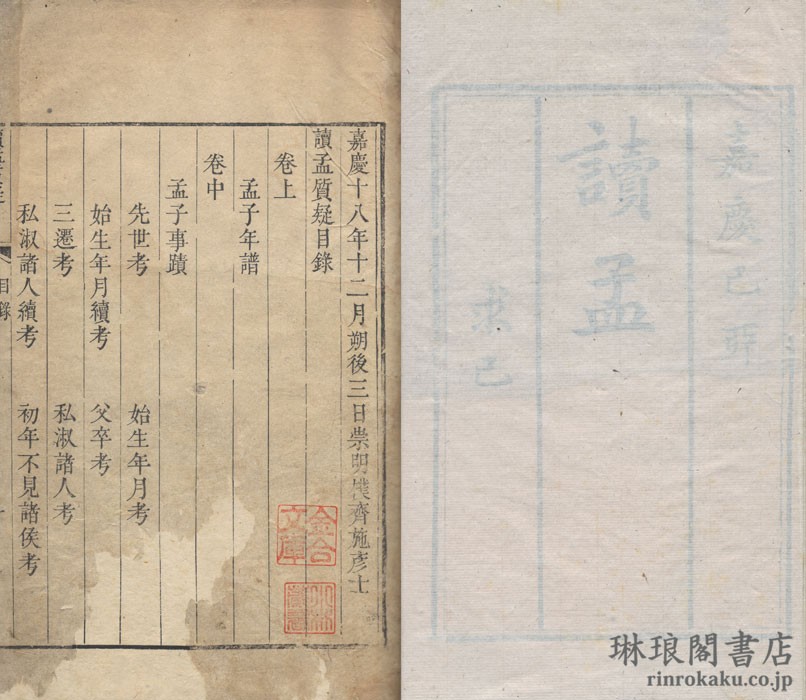 嘉慶己卯
讀孟
求己
嘉慶十八年十二月朔後三日崇明樸齊施彥士
讀孟質疑目錄
卷上
孟子年譜
卷中
孟子事蹟
先世考
始生年月考
始生年月續考
父卒考
三遷考
私淑諸人考
私淑諸人續考
初年不見諸侯考
目錄
金合
文庫
琳琅閣書店
rinrokaku.co.jp